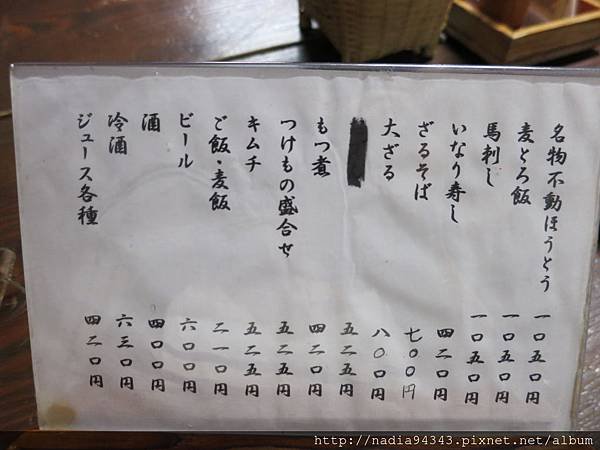 名物不動ほうとう 一〇五〇円
麦とろ飯 一〇五〇円
馬刺し 一〇五〇円
いなり寿し 四二〇円
ざるそば 七〇〇円
大ざる 八〇〇円
五二五円
もつ煮 四二〇円
つけもの盛合せ 五二五円
キムチ 五二五円
ご飯・麦飯 二一〇円
ビール 六〇〇円
酒 四〇〇円
冷酒 六三〇円
ジュース各種 四二〇円
http://nadia94343.pixnet.net/album